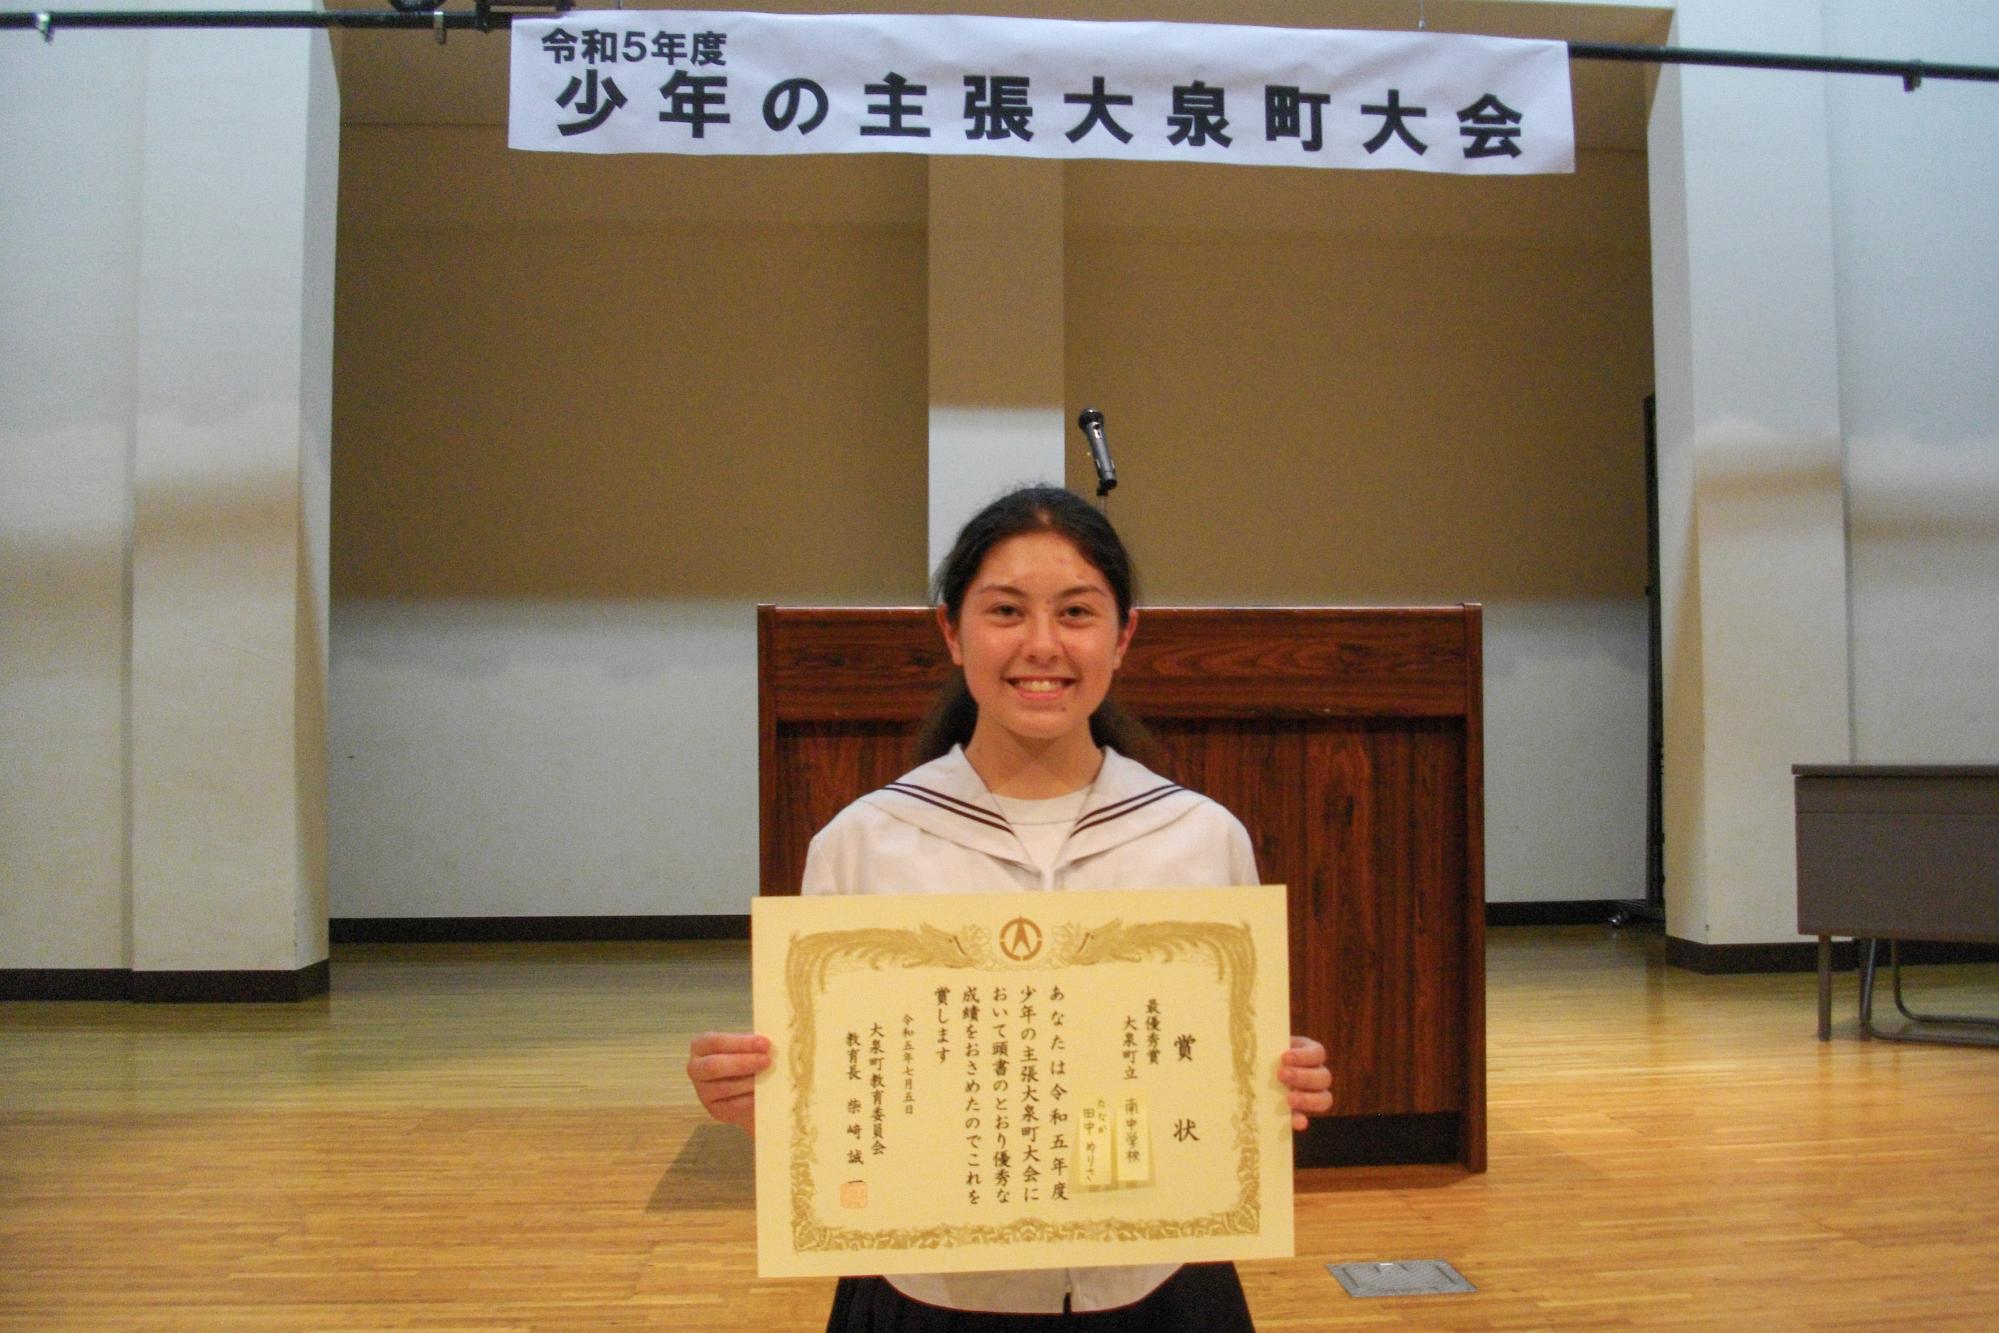 令和5年度
少年の主張大泉町大会
賞状
最優秀賞
大泉町立 南中学校
たなか
田中 めりさ
あなたは令和五年度
少年の主張大泉町大会に
おいて頭書のとおり優秀な
成績をおさめたのでこれを
賞します
令和五年七月五日
大泉町教育委員会
教育長 柴崎誠一